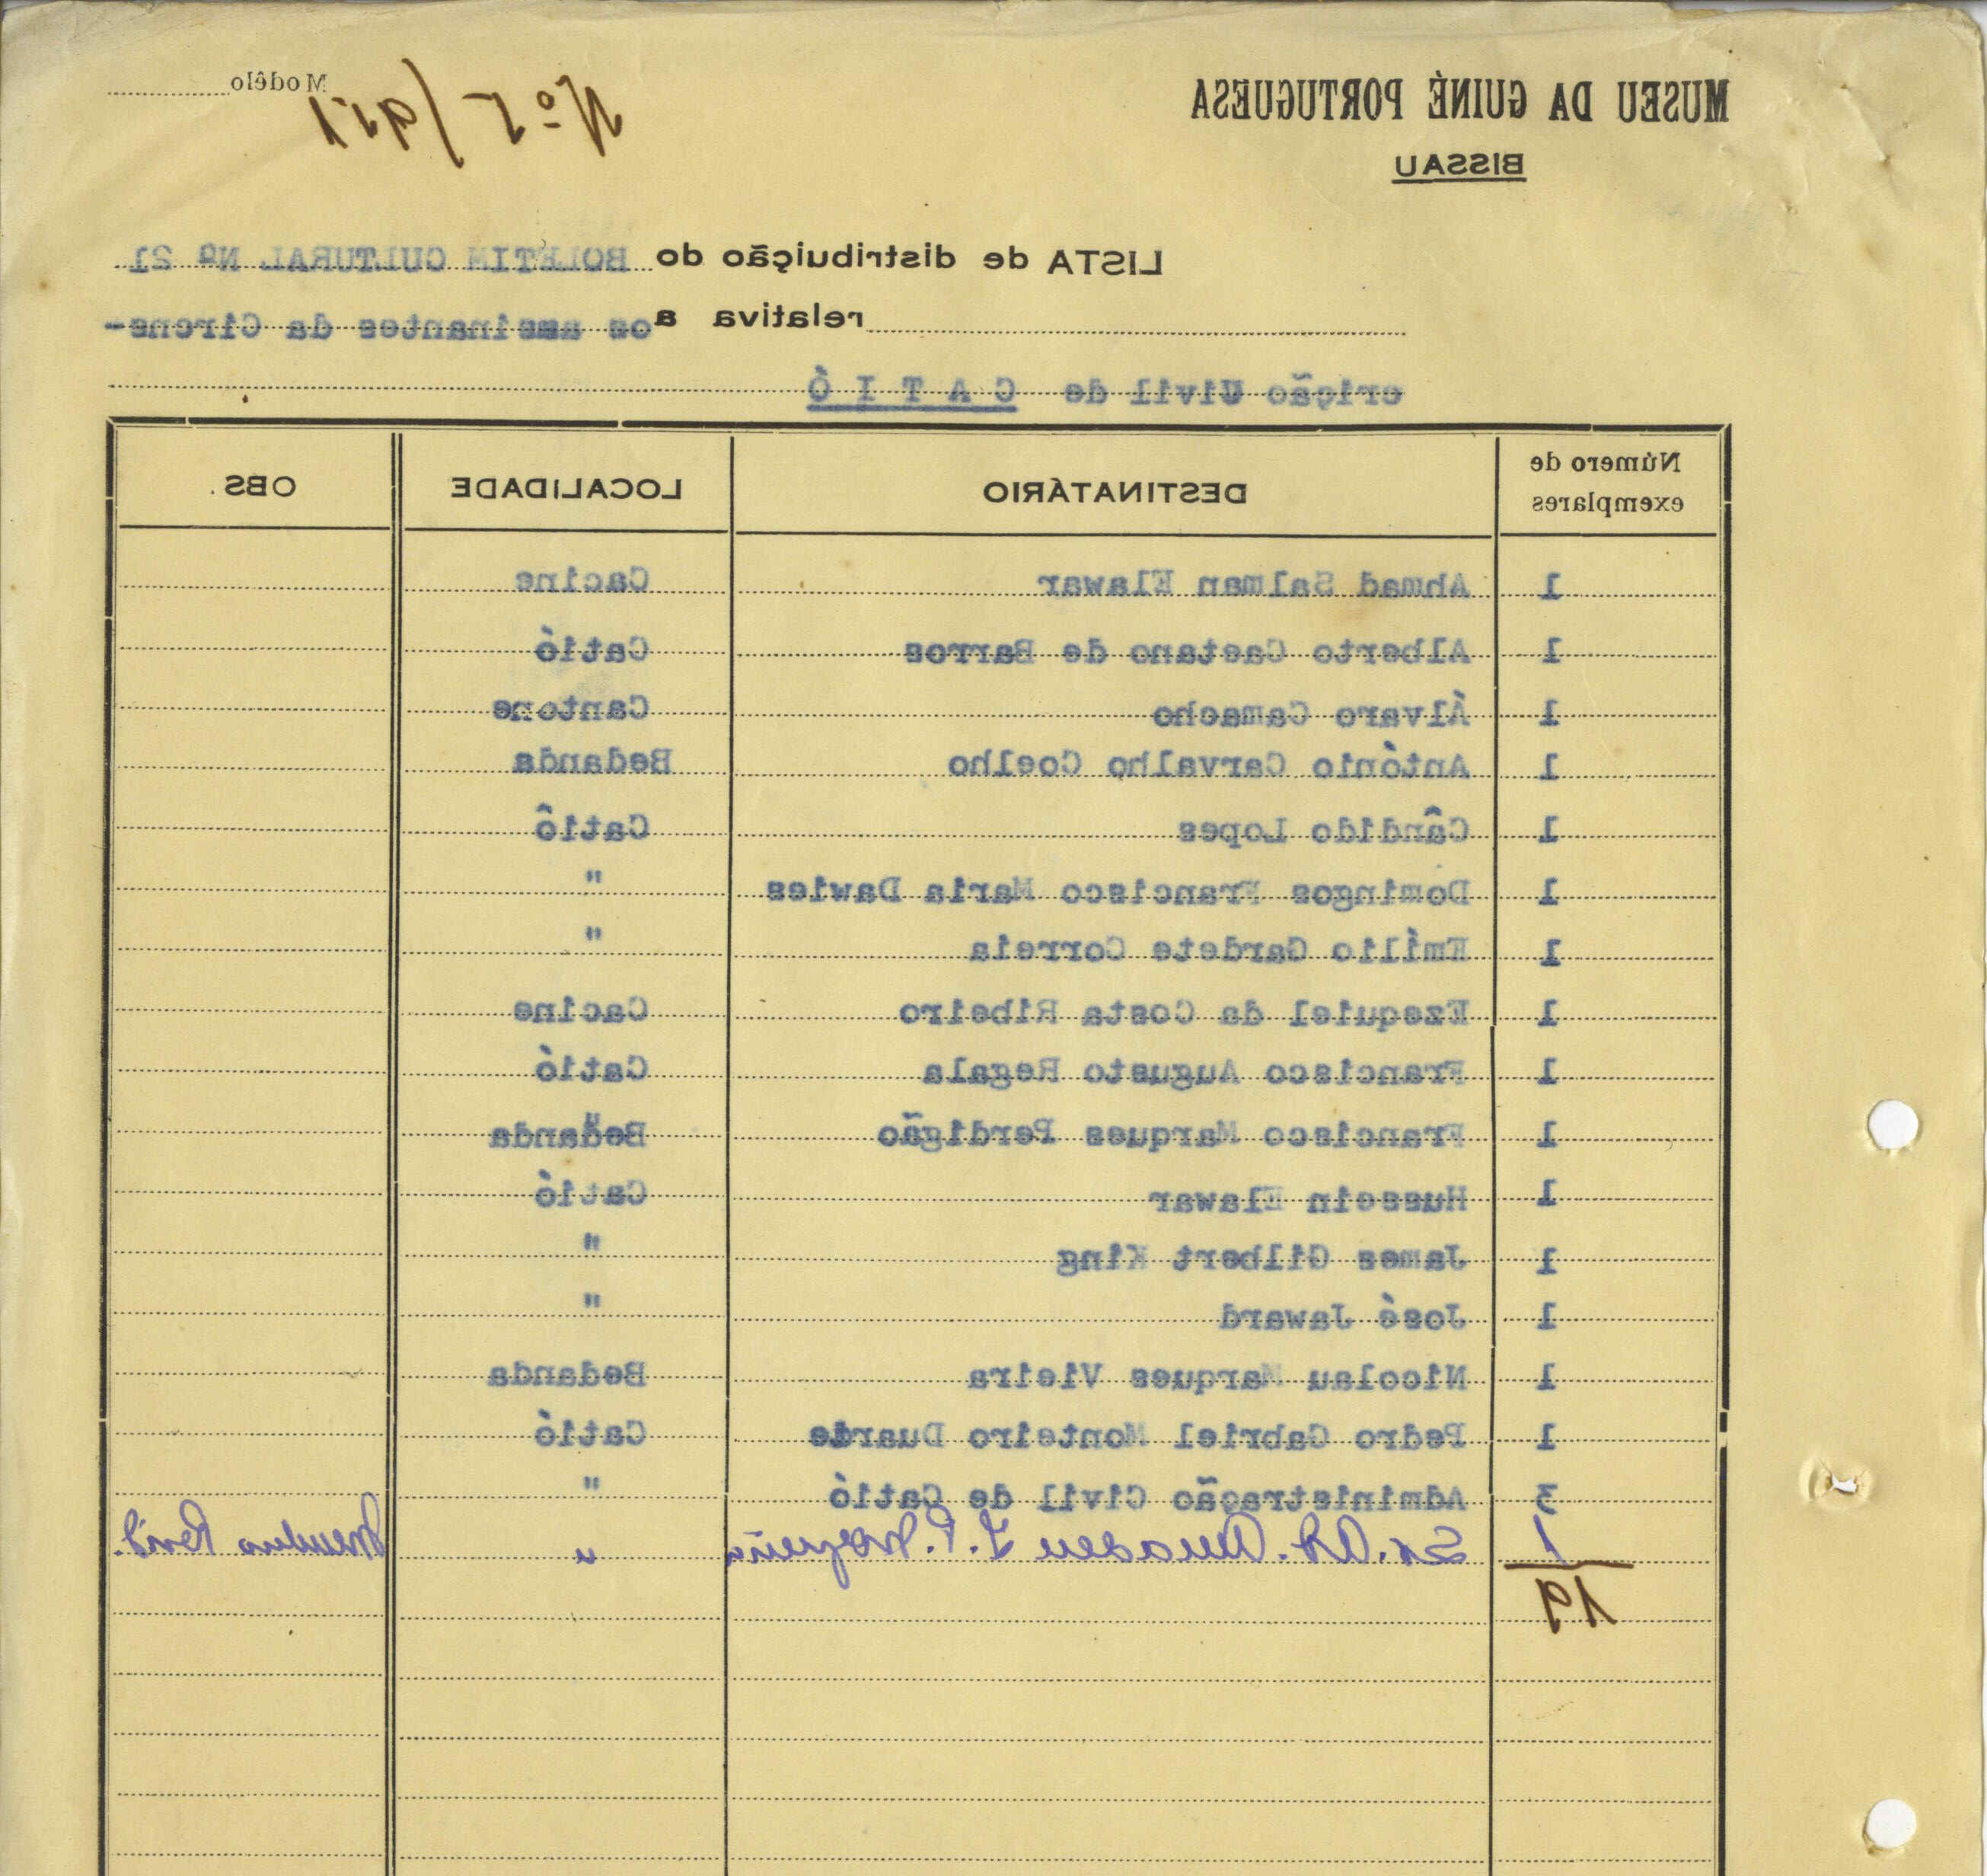 MUSEU DA GUINÉ PORTUGUESA
BISSAU
Modêlo
LISTA de distribuição do BOLETIM CULTURAL Nº 21
relativa aos assinantes da Circns-
crição Civil de C A T I Ó
Número de exemplares DESTINATÁRIO LOCALIDADE OBS.
1 Ahmad Salman Elawar Cacine
1 Alberto Caetano de Barros Catió
1 Álvaro Camacho Cantone
1 António Carvalho Coelho Bedanda
1 Cândido Lopes Catiô
1 Domingos Francisco Maria Dawies "
1 Emílio Gardete Correia "
1 Ezequiel da Costa Ribeiro Cacine
1 Francisco Augusto Regala Catió
1 Francisco Marques Perdigão Bedanda
1 Hussein Elawar Catió
1 James Gilbert King "
1 José Jaward "
1 Nicolau Marques Vieira Bedanda
1 Pedro Gabriel Monteiro Duarte Catió
3 Administração Civil de Catió "
1 Sr. Ad. Amadeu I. P. Nogueira "
19